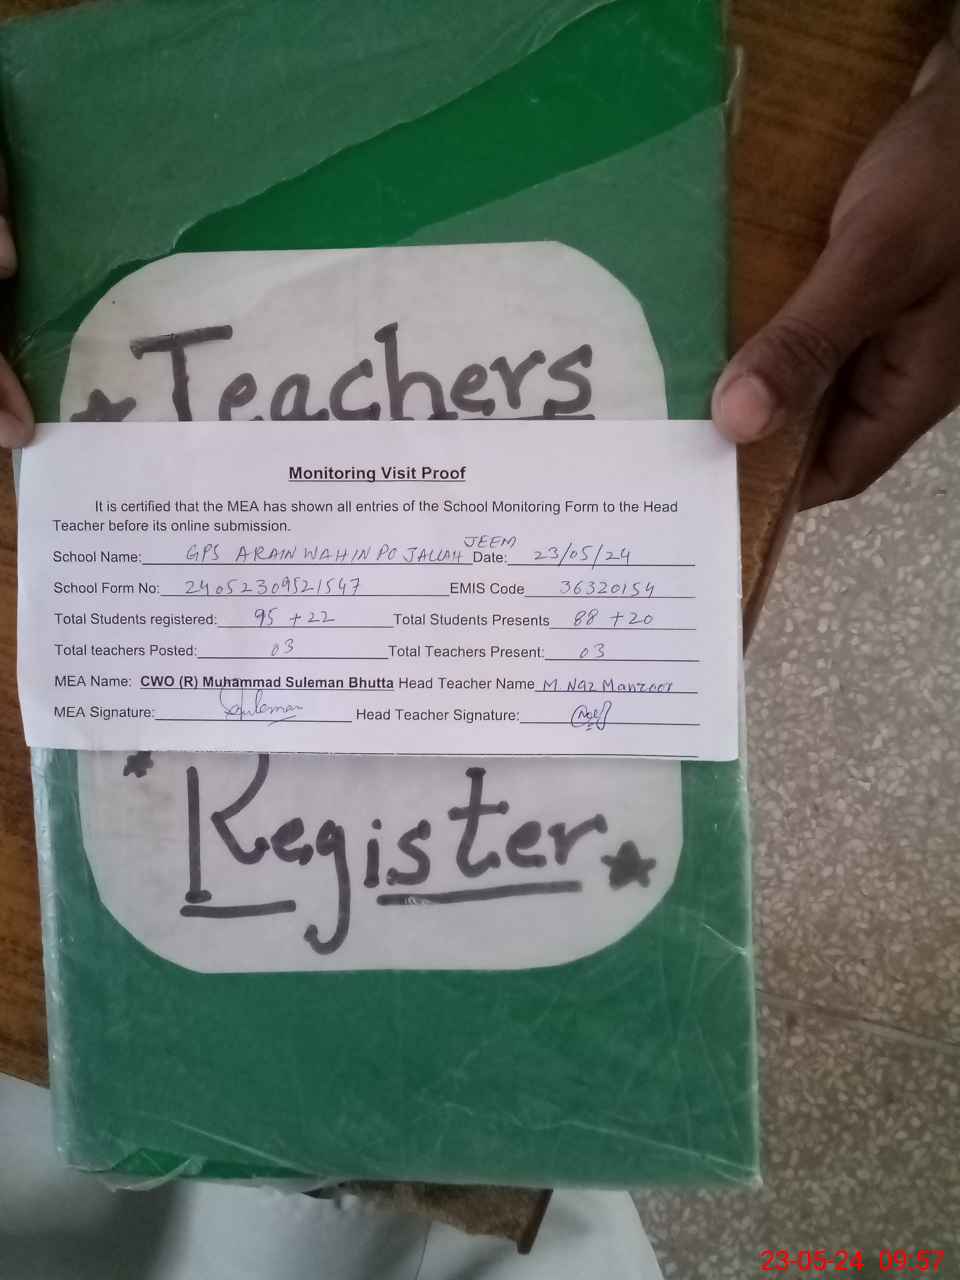 Teachers
Monitoring Visit Proof
It is certified that the MEA has shown all entries of the School Monitoring Form to the Head
Teacher before its online submission.
School Name: GPS ARAIN WAHIN PO JALLAH JEEM Date: 23/05/24
School Form No: 24052309521547 EMIS Code 36320154
Total Students registered: 95 + 22 Total Students Presents 88 + 20
Total teachers Posted: 03 Total Teachers Present: 03
MEA Name: CWO (R) Muhammad Suleman Bhutta Head Teacher Name M Naz Manzoor
MEA Signature: Suleman Head Teacher Signature:
Register
23-05-24 09:57